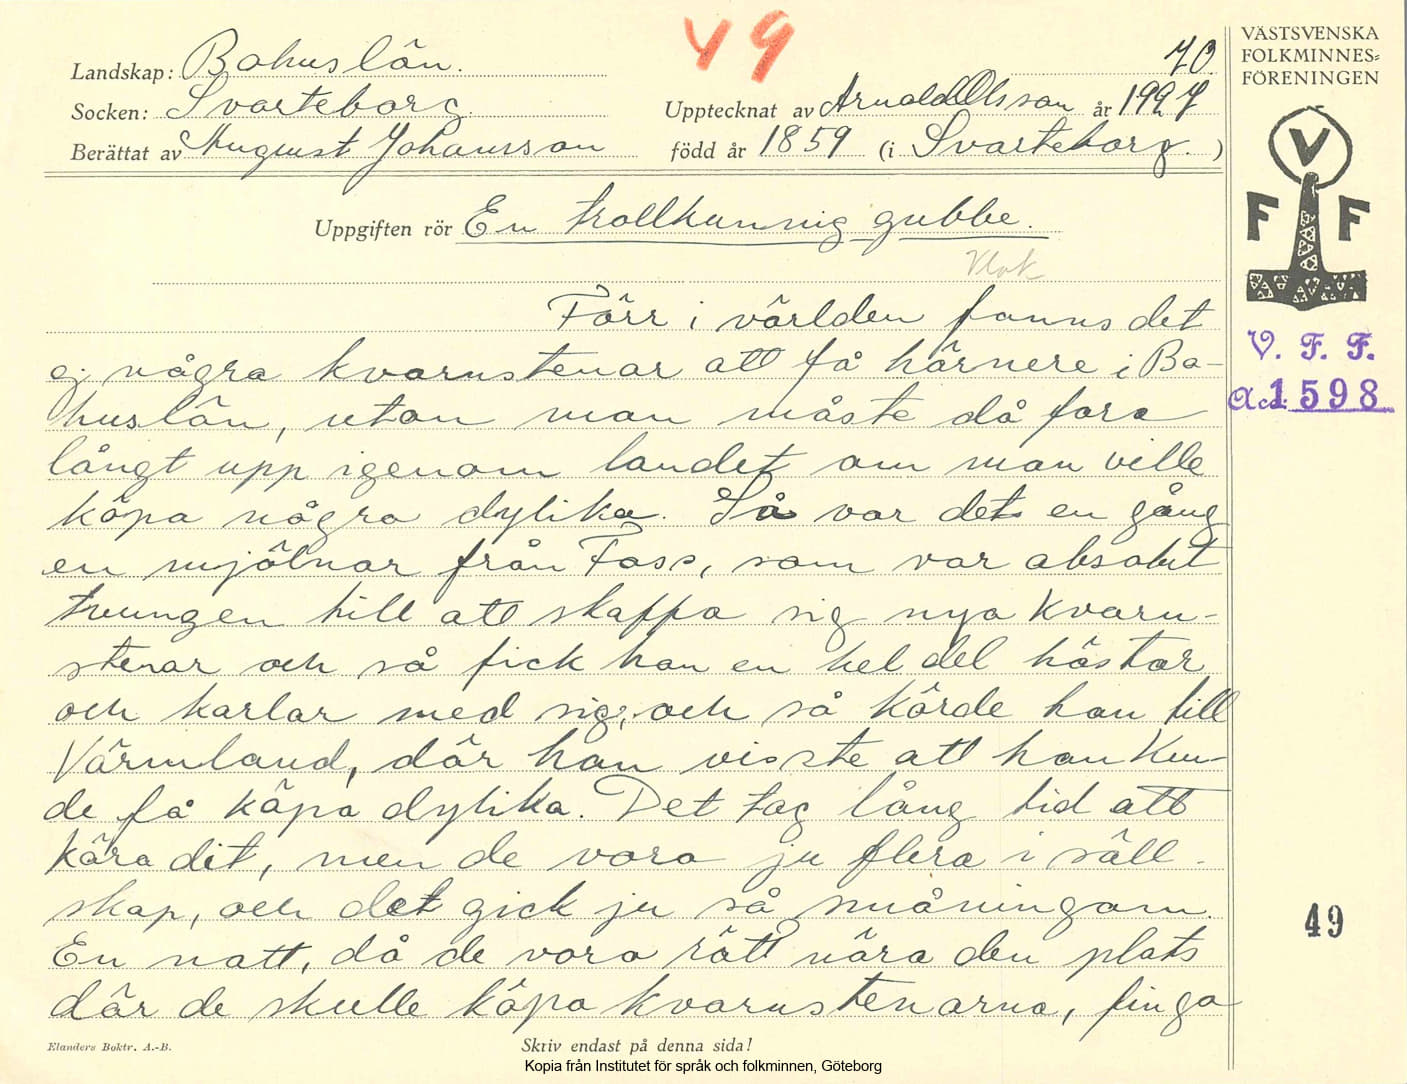 49
70
Landskap: Bohuslän.
Socken: Svarteborg.
Upptecknat av Arnold Olsson år 1927
Berättat av August Johansson född år 1859 (i Svarteborg.)
Uppgiften rör En trollkunnig gubbe.
Förr i världen fanns det
ej några kvarnstenar att få härnere i Bo-
huslän, utan man måste då fara
långt upp igenom landet om man ville
köpa några dylika. Så var det en gång
en mjölnar från Foss, som var absolut
tvungen till att skaffa sig nya kvarn-
stenar och så fick han en hel del hästar
och karlar med sig, och så körde han till
Värmland, där han visste att han kun-
de få köpa dylika. Det tog lång tid att
köra dit, men de voro ju flera i säll-
skap, och det gick ju så småningom.
En natt, då de voro rätt nära den plats
där de skulle köpa kvarnstenarna, finga
Elanders Boktr. A.-B.
Skriv endast på denna sida!
Kopia från Institutet för språk och folkminnen, Göteborg
VÄSTSVENSKA
FOLKMINNES=
FÖRENINGEN
V
F F
V. F. F.
Acc: 1598
49